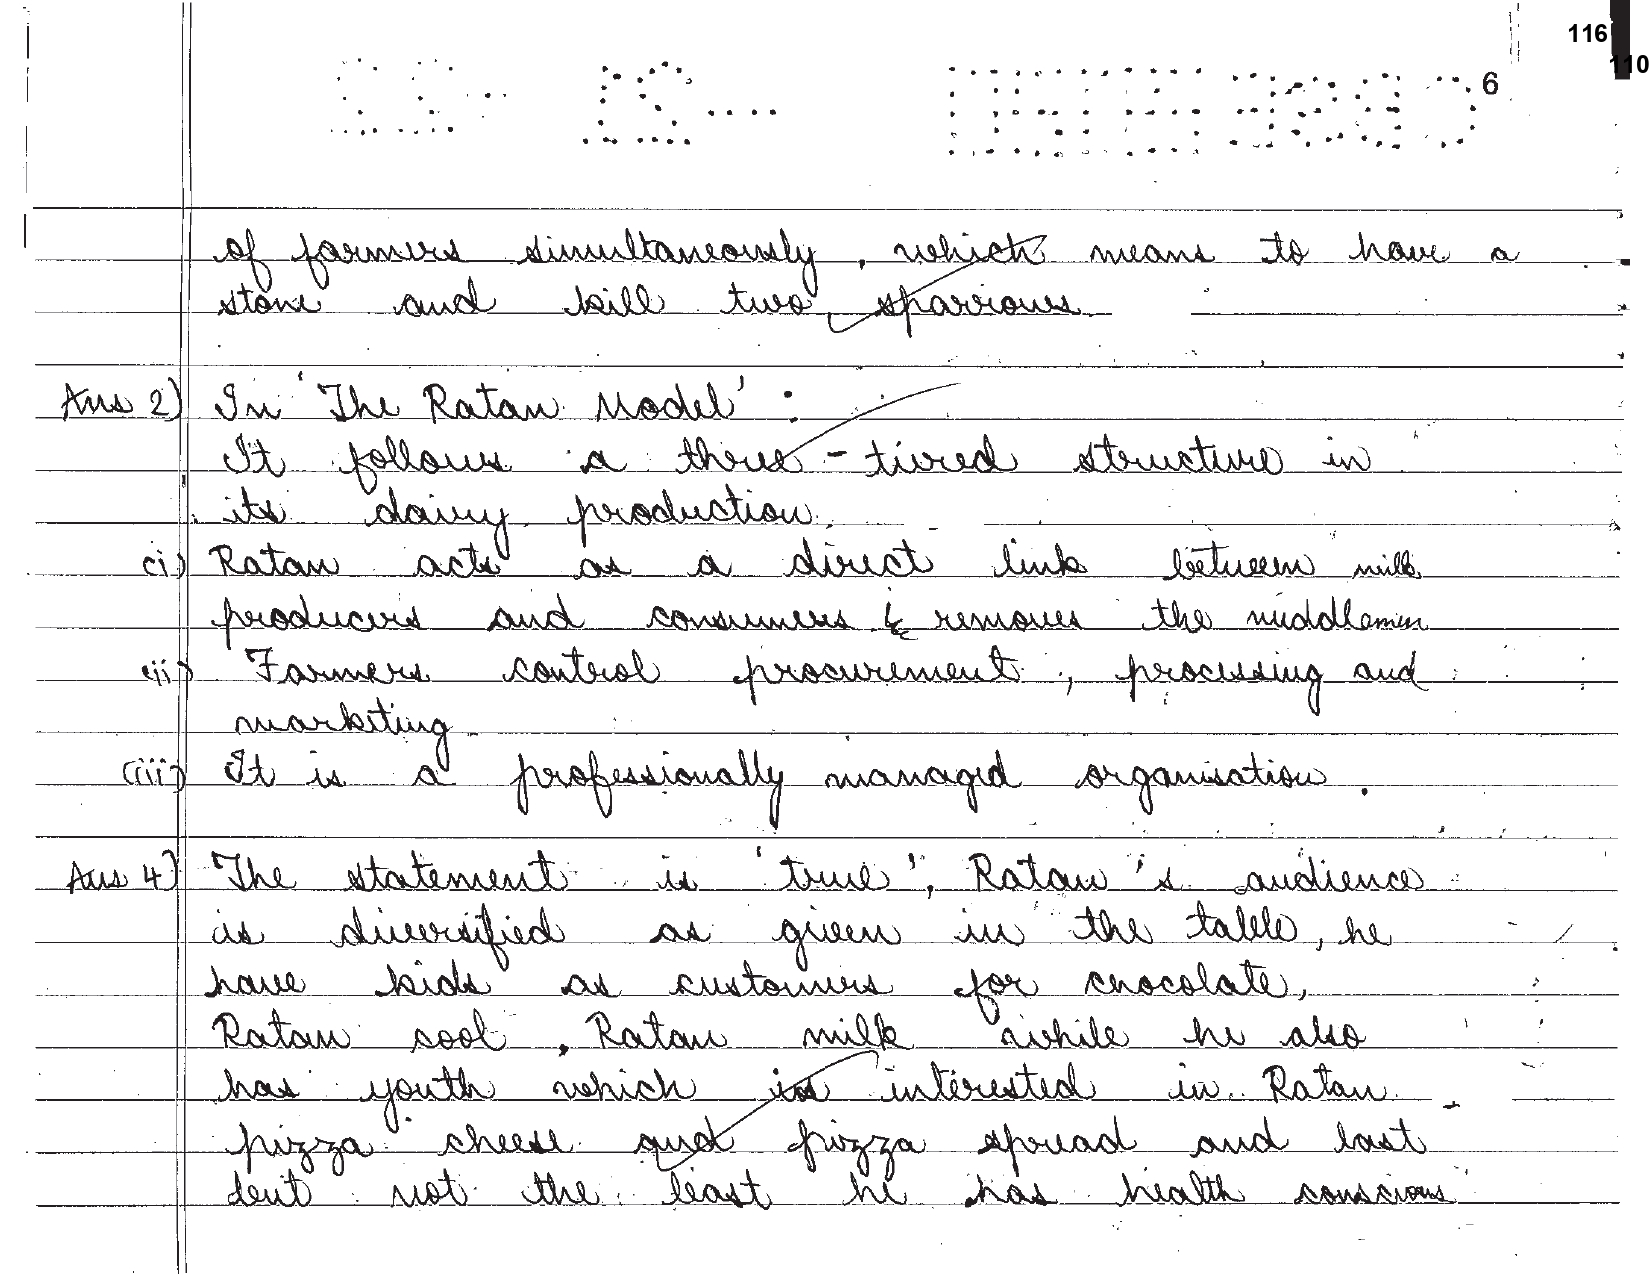 116
110
6
of farmers simultaneously, which means to have a
stone and kill two sparrows
Ans 2) In 'The Ratan Model' :
It follows a three-tired structure in
its dairy production.
(i) Ratan acts as a direct link between milk
producers and consumers & removes the middlemen
(ii) Farmers control procurement, processing and
marketing.
(iii) It is a professionally managed organisation.
Ans 4) The statement is 'true', Ratan's audience
is diversified as given in the table, he
have kids as customers for chocolate,
Ratan cool, Ratan milk while he also
has youth which is interested in Ratan
pizza cheese and pizza spread and last
but not the least he has health conscious